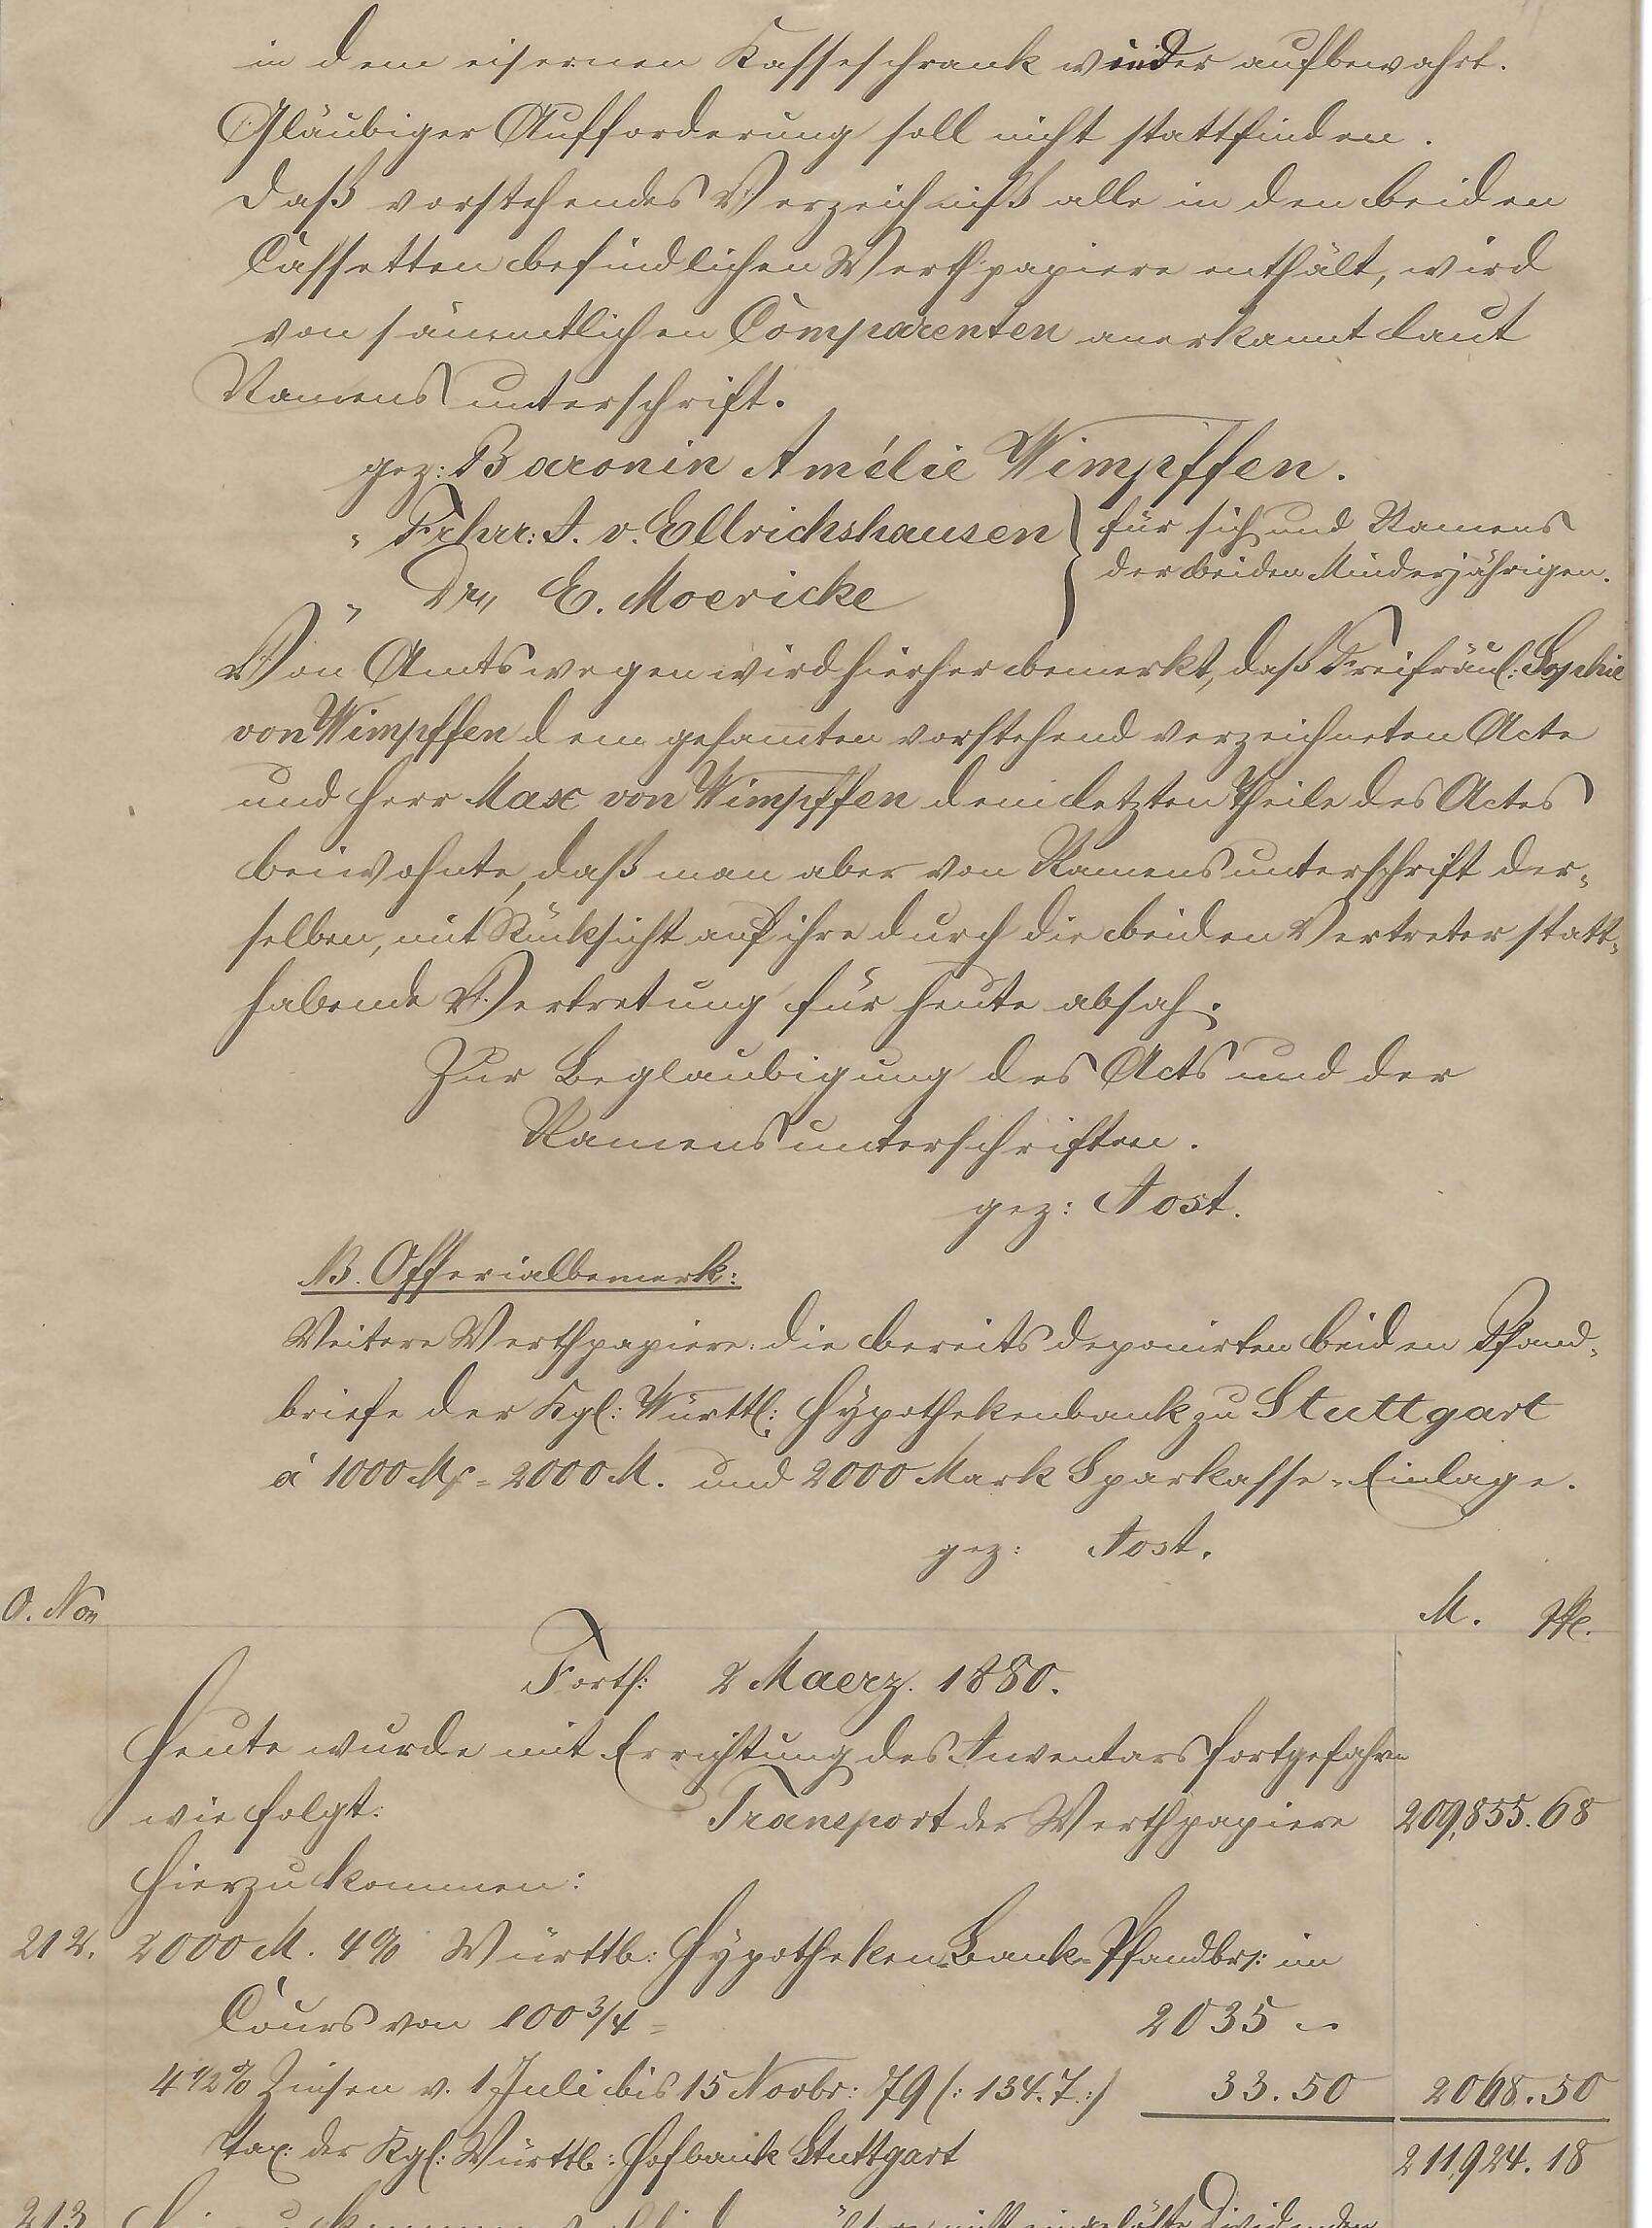 in dem eisernen Kasseschrank wieder aufbewahrt.
Gläubiger Aufforderung soll nicht stattfinden.
Daß vorstehendes Verzeichniß alle in den beiden
Cassetten befindlichen Werthpapiere enthält, wird
von sämmtlichen Comparenten anerkannt laut
Namensunterschrift.
gez: Baronin Amélie Wimpffen.
" Frhr: J. v. Ellrichshausen } für sich und Namens
der beiden Minderjährigen.
" Dr. E. Moericke
Von Amtswegen wird hierher bemerkt, daß Freifräul: Sophie
von Wimpffen dem gesamten vorstehend verzeichneten Acte
und Herr Max von Wimpffen dem letzten Theile des Actes
beiwohnte, daß man aber von Namensunterschrift der-
selben, mit Rücksicht auf ihre durch die beiden Vertreter statt-
habende Vertretung für heute absah.
Zur Beglaubigung des Acts und der
Namensunterschriften.
gez: Jost.
N.B. Offerialbemerk:
Weitere Werthpapiere: die bereits deponirten beiden Pfand-
briefe der Kgl: Württ: Hypothekenbank zu Stuttgart
à 1000 M = 2000 M. und 2000 Mark Sparkasse-Einlage.
gez: Jost.
O. No M. Pf.
Forts: 2 Maerz. 1880.
Heute wurde mit Errichtung des Inventars fortgefahren
wie folgt: Transport der Werthpapiere 209,855.68
Hierzu kommen:
212. 2000 M. 4% Württb: Hypotheken-Bank-Pfandbr: im
Cours von 100 3/4 = 2035 -
4 1/2% Zinsen v. 1 Juli bis 15 Novbr: 79 (: 134. T.:) 33.50 2068.50
Tax: der Kgl: Württb: Hofbank Stuttgart 211,924.18
213 nicht eingelöste Dividenden